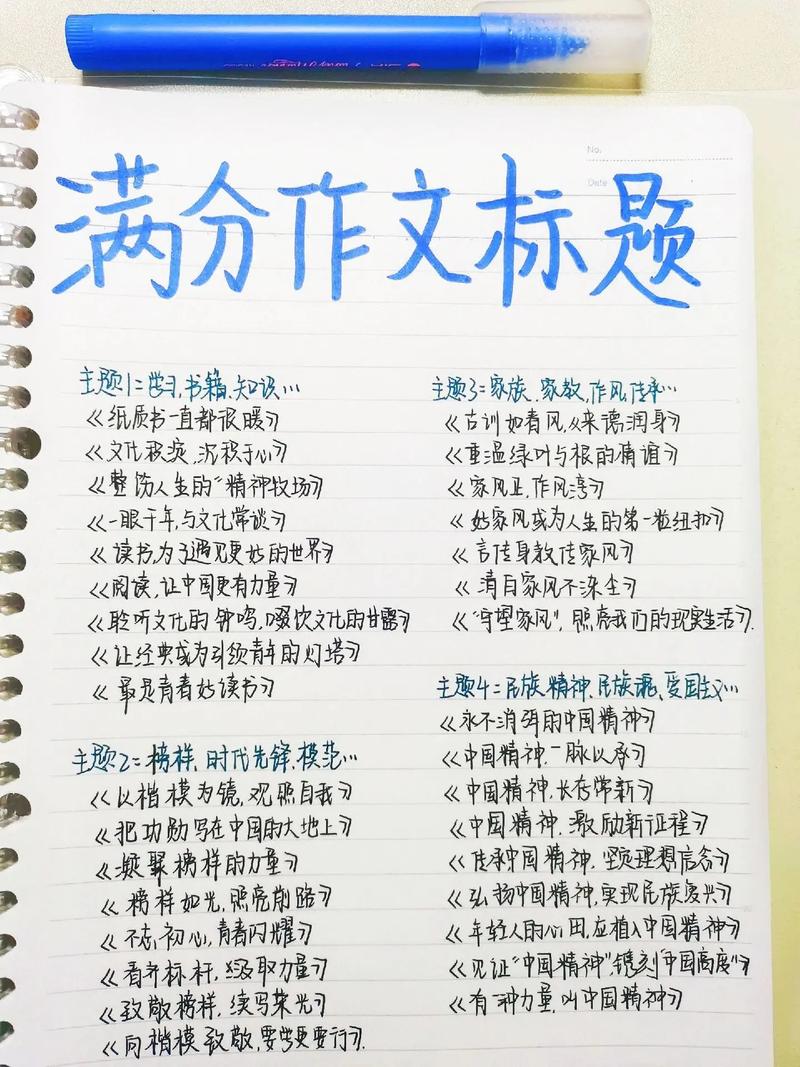 No.
Date
满分作文标题
主题1=学习,书籍,知识…
《纸质书一直都很暖》
《文化积淀,沉积于心》
《整饬人生的“精神牧场》
《一眼千年,与文化常谈》
《读书,为了遇见更好的世界》
《阅读,让中国更有力量》
《聆听文化的钟鸣,啜饮文化的甘露》
《让经典成为引领青年的灯塔》
《最是青春好读书》
主题2=榜样,时代先锋,模范…
《以楷模为镜,观照自我》
《把功勋写在中国的大地上》
《凝聚榜样的力量》
《榜样如光,照亮前路》
《不忘初心,青春闪耀》
《看齐标杆,汲取力量》
《致敬榜样,续写荣光》
《向楷模致敬,要学更要行》.
主题3=家族,家教,作风,传承…
《古训如春风,从来德润身》
《重温绿叶与根的情谊》
《家风正,作风淳》
《好家风成为人生的第一粒纽扣》
《言传身教传家风》
《清白家风不染尘》
《“守望家风”,照亮我们的现实生活》.
主题4=民族精神,民族魂,爱国主义…
《永不消弭的中国精神》
《中国精神,一脉以承》
《中国精神,长存常新》
《中国精神,激励新征程》
《传承中国精神,坚定理想信念》
《弘扬中国精神,实现民族复兴》
《年轻人的心田,应植入中国精神》
《见证“中国精神”,镌刻“中国高度”》
《有一种力量,叫中国精神》